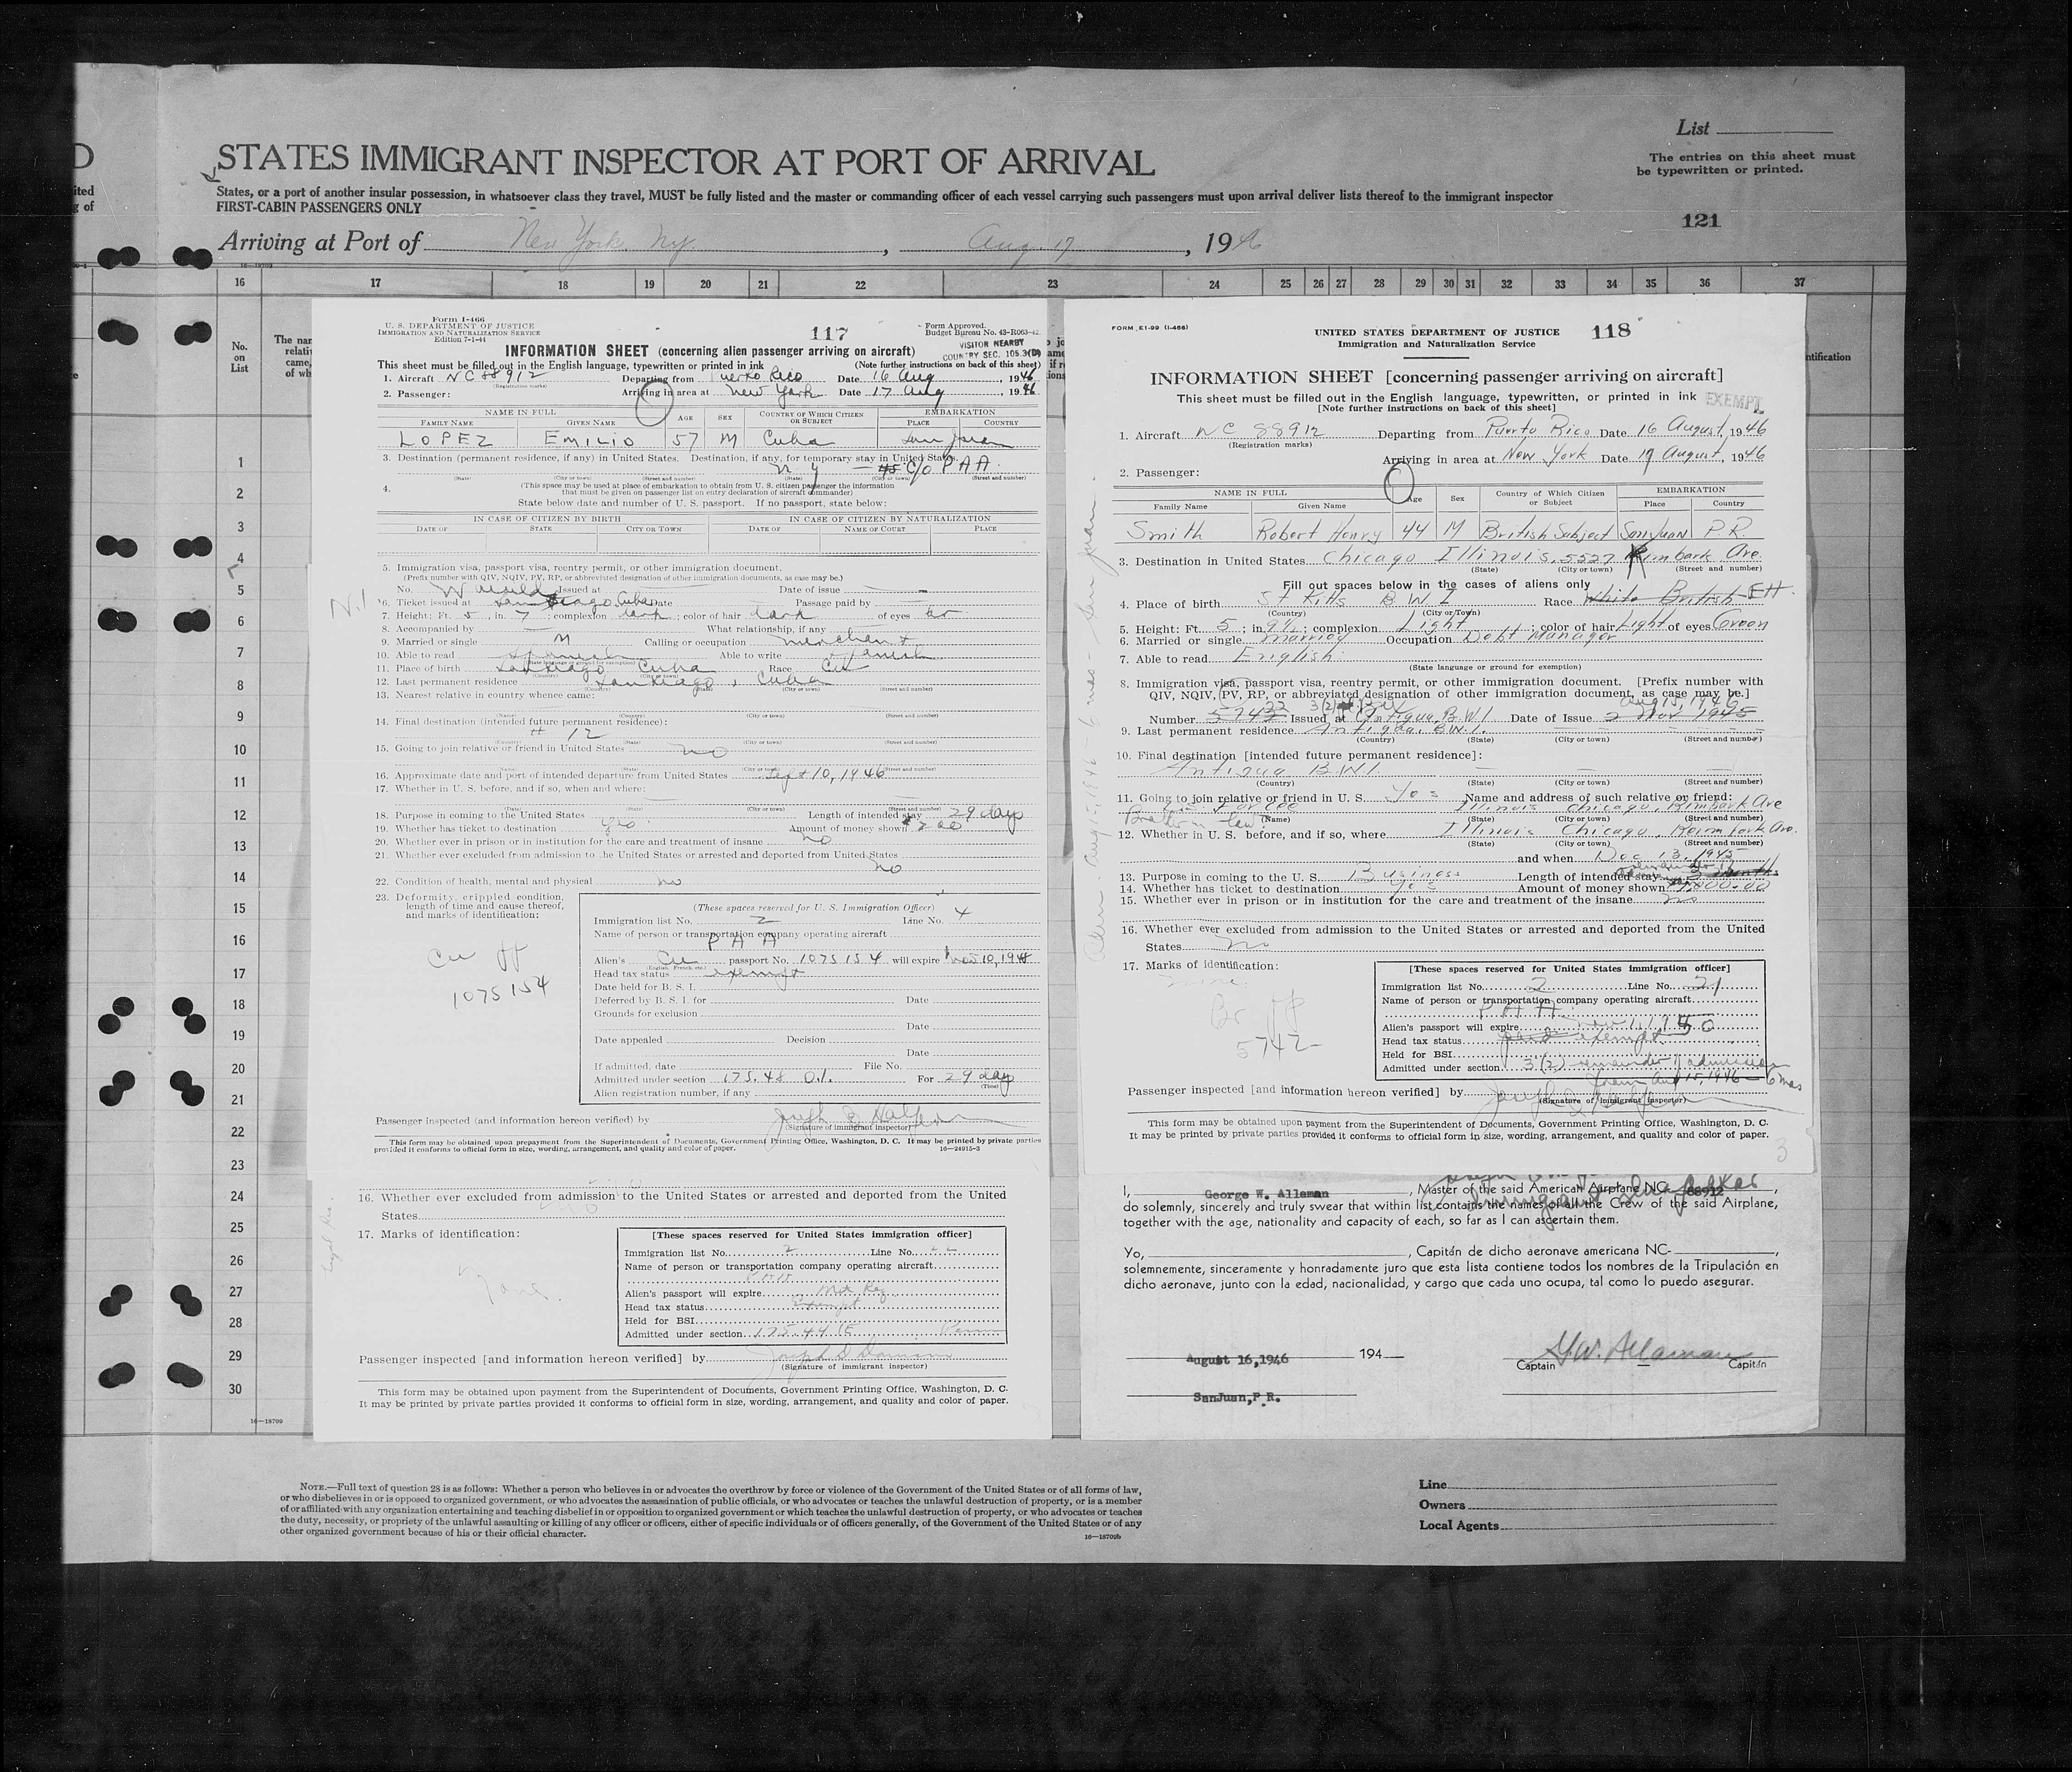 D
STATES IMMIGRANT INSPECTOR AT PORT OF ARRIVAL
List
The entries on this sheet must
be typewritten or printed.
ited
g of
States, or a port of another insular possession, in whatsoever class they travel, MUST be fully listed and the master or commanding officer of each vessel carrying such passengers must upon arrival deliver lists thereof to the immigrant inspector
FIRST-CABIN PASSENGERS ONLY
121
Arriving at Port of New York, NY, Aug. 17, 1946
16 17 18 19 20 21 22 23 24 25 26 27 28 29 30 31 32 33 34 35 36 37
No.
on
List
The nam
relati
came,
of wh
ntification
1
2
3
4
5
6
7
8
9
10
11
12
13
14
15
16
17
18
19
20
21
22
23
24
25
26
27
28
29
30
16—18709
Form I-466
U. S. DEPARTMENT OF JUSTICE
IMMIGRATION AND NATURALIZATION SERVICE
Edition 7-1-44
117
Form Approved.
Budget Bureau No. 43-R063-42.
VISITOR NEARBY
COUNTRY SEC. 105.3(D)
INFORMATION SHEET (concerning alien passenger arriving on aircraft)
This sheet must be filled out in the English language, typewritten or printed in ink (Note further instructions on back of this sheet)
1. Aircraft NC 88912 Departing from Puerto Rico Date 16 Aug, 1946
(Registration marks)
2. Passenger: Arriving in area at New York Date 17 Aug, 1946
NAME IN FULL AGE SEX COUNTRY OF WHICH CITIZEN OR SUBJECT EMBARKATION
FAMILY NAME GIVEN NAME PLACE COUNTRY
LOPEZ EMILIO 57 M Cuba San Juan
3. Destination (permanent residence, if any) in United States. Destination, if any, for temporary stay in United States.
N Y c/o PAA.
(State) (City or town) (Street and number) (State) (City or town) (Street and number)
4. (This space may be used at place of embarkation to obtain from U. S. citizen passenger the information
that must be given on passenger list on entry declaration of aircraft commander)
State below date and number of U. S. passport. If no passport, state below:
IN CASE OF CITIZEN BY BIRTH IN CASE OF CITIZEN BY NATURALIZATION
DATE OF STATE CITY OR TOWN DATE OF NAME OF COURT PLACE
5. Immigration visa, passport visa, reentry permit, or other immigration document.
(Prefix number with QIV, NQIV, PV, RP, or abbreviated designation of other immigration documents, as case may be.)
No. Issued at Date of issue
6. Ticket issued at Santiago, Cuba Date Passage paid by
7. Height: Ft. 5, in. 7; complexion dark; color of hair dark of eyes br
8. Accompanied by What relationship, if any
9. Married or single M Calling or occupation merchant
10. Able to read Spanish Able to write Spanish
(State language or ground for exemption)
11. Place of birth Santiago Cuba Race Cu
(Country) (City or town)
12. Last permanent residence Santiago, Cuba
(Country) (State) (City or town) (Street and number)
13. Nearest relative in country whence came:
(Name) (Country) (City or town) (Street and number)
14. Final destination (intended future permanent residence):
# 12
(Country) (State) (City or town) (Street and number)
15. Going to join relative or friend in United States no
(Name) (State) (City or town) (Street and number)
16. Approximate date and port of intended departure from United States Sept 10, 1946
17. Whether in U. S. before, and if so, when and where:
(Date) (State) (City or town) (Street and number)
18. Purpose in coming to the United States Length of intended stay 29 days
19. Whether has ticket to destination yes Amount of money shown $200
20. Whether ever in prison or in institution for the care and treatment of insane no
21. Whether ever excluded from admission to the United States or arrested and deported from United States
no
22. Condition of health, mental and physical no
23. Deformity, crippled condition,
length of time and cause thereof,
and marks of identification:
Cu PP
1075154
(These spaces reserved for U. S. Immigration Officer)
Immigration list No. 2 Line No. 4
Name of person or transportation company operating aircraft
PAA
Alien's Cu passport No. 1075154 will expire Nov 10, 1948
(English, French, etc.)
Head tax status exempt
Date held for B. S. I.
Deferred by B. S. I. for Date
Grounds for exclusion
Date
Date appealed Decision
Date
If admitted, date File No.
Admitted under section 175.48 0.1. For 29 days
(Time)
Alien registration number, if any
Passenger inspected (and information hereon verified) by
(Signature of immigrant inspector)
This form may be obtained upon prepayment from the Superintendent of Documents, Government Printing Office, Washington, D. C. It may be printed by private parties
provided it conforms to official form in size, wording, arrangement, and quality and color of paper. 16—24915-3
16. Whether ever excluded from admission to the United States or arrested and deported from the United
States
17. Marks of identification:
None.
[These spaces reserved for United States immigration officer]
Immigration list No. 2 Line No.
Name of person or transportation company operating aircraft
Alien's passport will expire
Head tax status Exempt
Held for BSI
Admitted under section 175.44
Passenger inspected [and information hereon verified] by
(Signature of immigrant inspector)
This form may be obtained upon payment from the Superintendent of Documents, Government Printing Office, Washington, D. C.
It may be printed by private parties provided it conforms to official form in size, wording, arrangement, and quality and color of paper.
FORM E1-99 (I-466)
UNITED STATES DEPARTMENT OF JUSTICE 118
Immigration and Naturalization Service
INFORMATION SHEET [concerning passenger arriving on aircraft]
This sheet must be filled out in the English language, typewritten, or printed in ink EXEMPT
[Note further instructions on back of this sheet]
1. Aircraft NC 88912 Departing from Puerto Rico Date 16 August, 1946
(Registration marks)
Arriving in area at New York Date 17 August, 1946
2. Passenger:
NAME IN FULL Age Sex Country of Which Citizen or Subject EMBARKATION
Family Name Given Name Place Country
Smith Robert Henry 44 M British Subject San Juan P.R.
3. Destination in United States Chicago Illinois, 5527 Kimbark Ave.
(State) (City or town) (Street and number)
Fill out spaces below in the cases of aliens only
4. Place of birth St Kitts B W I Race White British
(Country) (City or Town)
5. Height: Ft. 5; in 9½; complexion Light; color of hair Light of eyes Green
6. Married or single married Occupation Dept Manager
7. Able to read English
(State language or ground for exemption)
8. Immigration visa, passport visa, reentry permit, or other immigration document. [Prefix number with
QIV, NQIV, PV, RP, or abbreviated designation of other immigration document, as case may be.]
Aug 15, 1946
Number Issued at Antigua, B.W.I Date of Issue 2 Nov 1945
9. Last permanent residence Antigua, B.W.I.
(Country) (State) (City or town) (Street and number)
10. Final destination [intended future permanent residence]:
Antigua B.W.I.
(Country) (State) (City or town) (Street and number)
11. Going to join relative or friend in U. S. Yes Name and address of such relative or friend:
Illinois Chicago, Kimbark Ave
Brother in law. (Name) (State) (City or town) (Street and number)
12. Whether in U. S. before, and if so, where Illinois Chicago, Kimbark Ave.
(State) (City or town) (Street and number)
and when Dec 13, 1945
13. Purpose in coming to the U. S. Business Length of intended stay 3 months
14. Whether has ticket to destination Yes Amount of money shown $1,000.00
15. Whether ever in prison or in institution for the care and treatment of the insane no
16. Whether ever excluded from admission to the United States or arrested and deported from the United
States no
17. Marks of identification:
None.
Br PP
5742
[These spaces reserved for United States immigration officer]
Immigration list No. 2 Line No. 21
Name of person or transportation company operating aircraft
PAA.
Alien's passport will expire
Head tax status exempt
Held for BSI
Admitted under section 3(2) remainder of admission
from Aug 15, 1946 — 6 mos
Passenger inspected [and information hereon verified] by
(Signature of immigrant inspector)
This form may be obtained upon payment from the Superintendent of Documents, Government Printing Office, Washington, D. C.
It may be printed by private parties provided it conforms to official form in size, wording, arrangement, and quality and color of paper.
3
I, George W. Alleman, Master of the said American Airplane NC 88912,
do solemnly, sincerely and truly swear that within list contains the names of all the Crew of the said Airplane,
together with the age, nationality and capacity of each, so far as I can ascertain them.
Yo, , Capitán de dicho aeronave americana NC- ,
solemnemente, sinceramente y honradamente juro que esta lista contiene todos los nombres de la Tripulación en
dicho aeronave, junto con la edad, nacionalidad, y cargo que cada uno ocupa, tal como lo puedo asegurar.
August 16,1946 194
Captain G.W. Allaman Capitán
SanJuan,P.R.
NOTE.—Full text of question 28 is as follows: Whether a person who believes in or advocates the overthrow by force or violence of the Government of the United States or of all forms of law,
or who disbelieves in or is opposed to organized government, or who advocates the assassination of public officials, or who advocates or teaches the unlawful destruction of property, or is a member
of or affiliated with any organization entertaining and teaching disbelief in or opposition to organized government or which teaches the unlawful destruction of property, or who advocates or teaches
the duty, necessity, or propriety of the unlawful assaulting or killing of any officer or officers, either of specific individuals or of officers generally, of the Government of the United States or of any
other organized government because of his or their official character.
16—18709b
Line
Owners
Local Agents